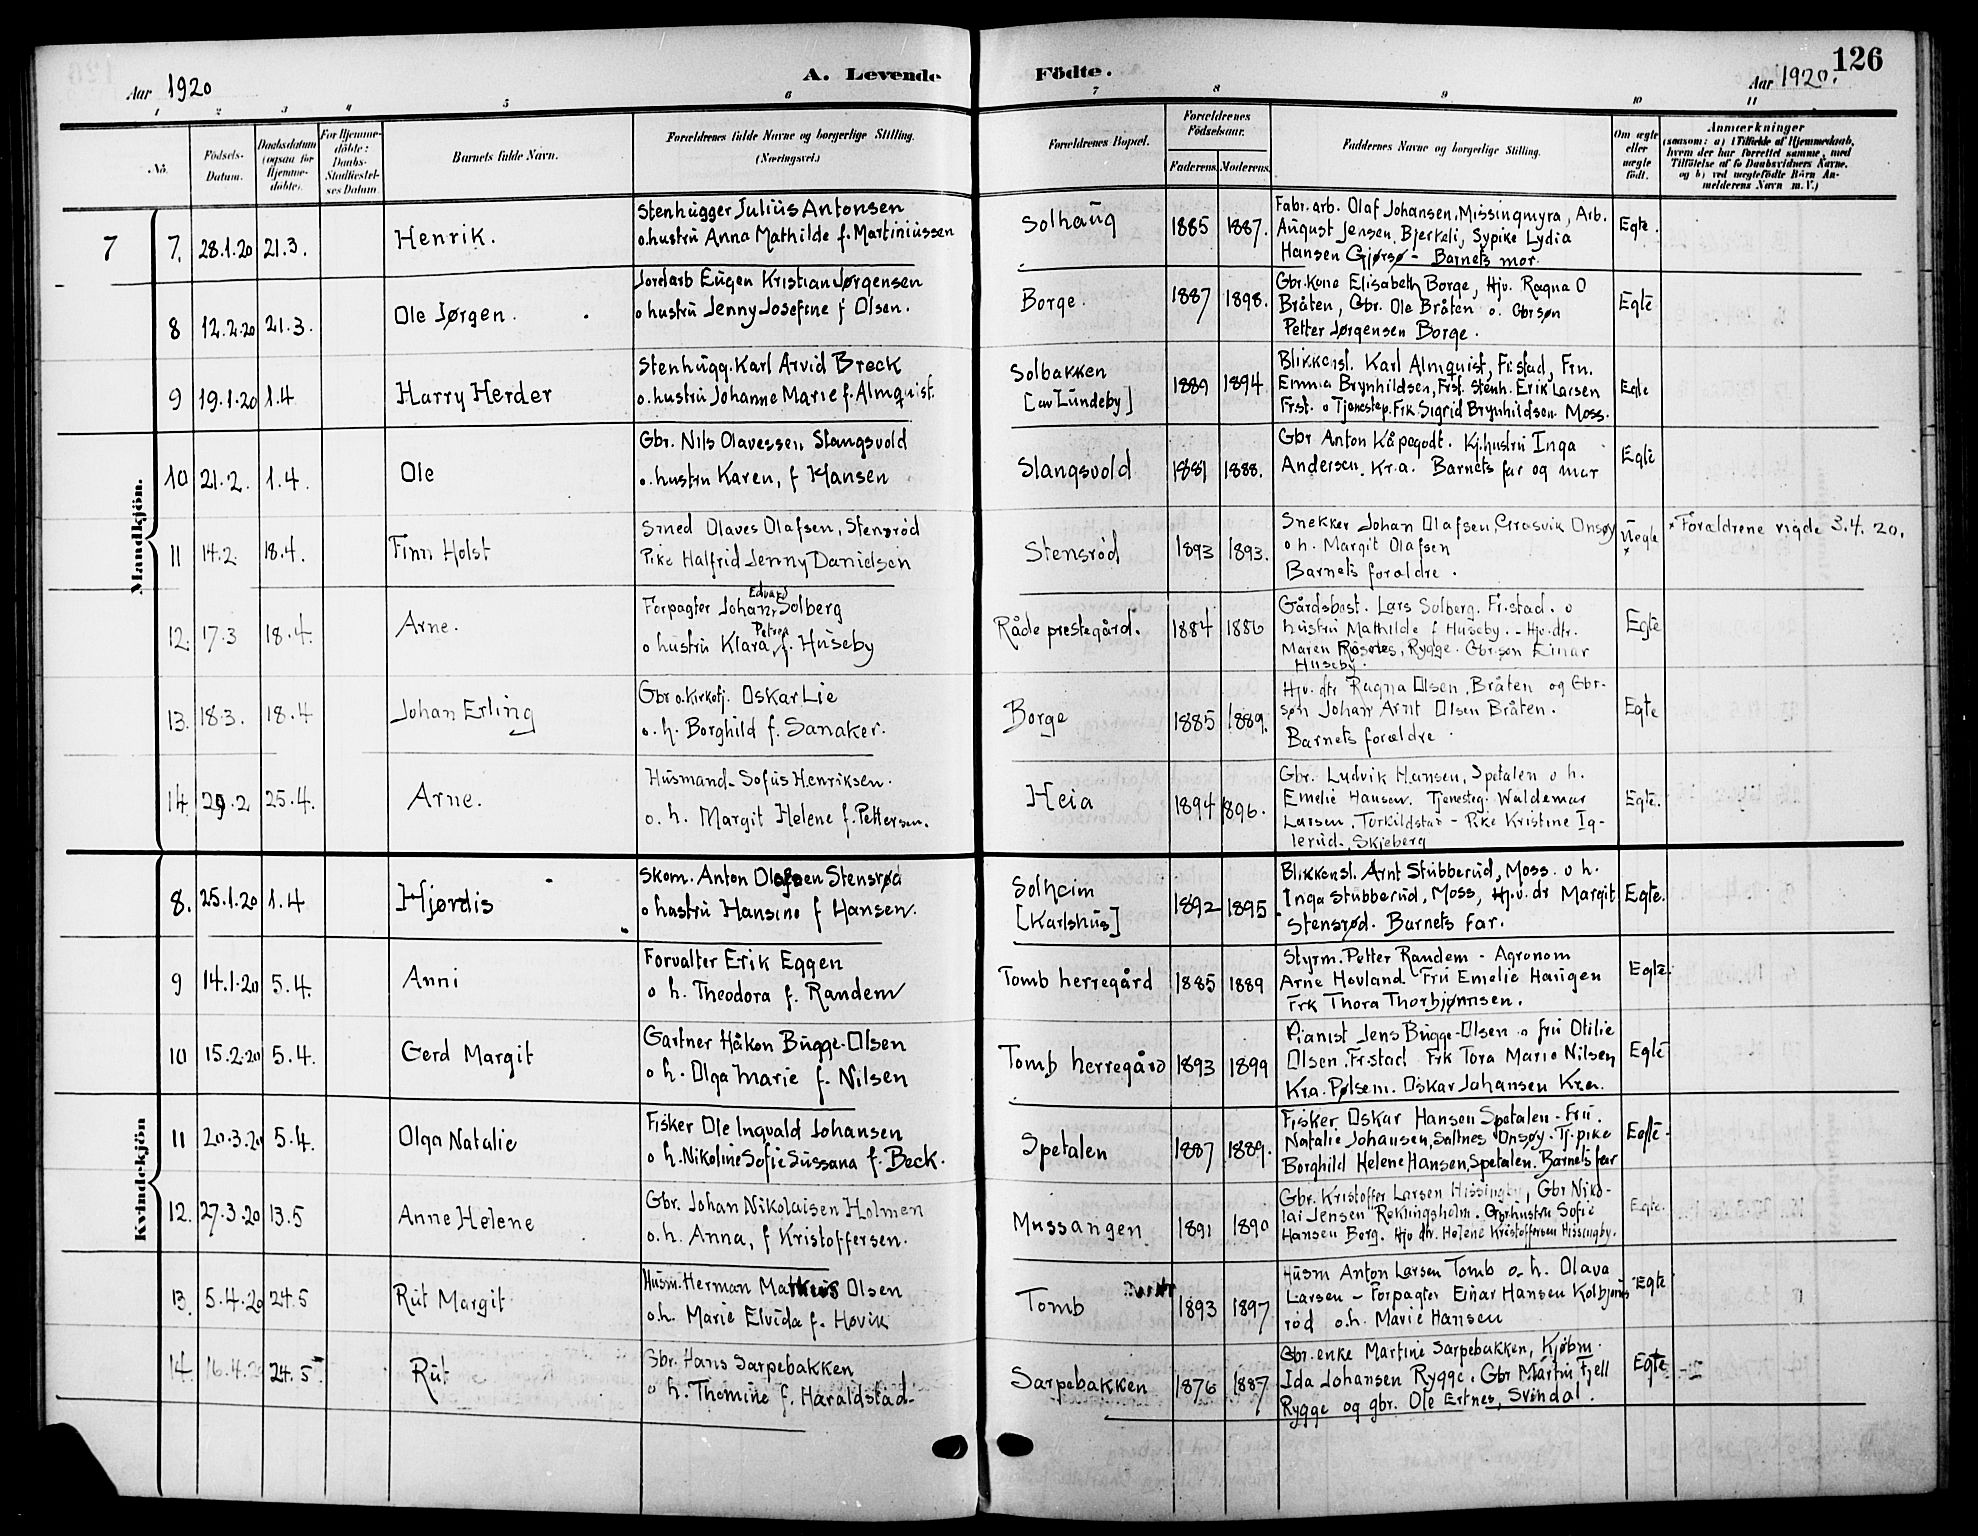 Aar 1920
A. Levende
Födte.
Aar 1920.
126
1 2 3 4 5 6 7 8 9 10 11
No.
Födsels-
Datum.
Daabsdatum
(ogsaa for
Hjemme-
döbte).
For Hjemme-
döbte:
Daabs-
Stadfæstel-
ses Datum
Barnets fulde Navn.
Forældrenes fulde Navne og borgerlige Stilling.
(Næringsvei.)
Forældrenes Bopæl.
Forældrenes
Födselsaar.
Faderens. Moderens.
Faddernes Navne og borgerlige Stilling.
Om ægte
eller
uægte
födt.
Anmærkninger
(saasom: a) i Tilfælde af Hjemmedaab,
hvem der har forrettet samme, med
Tilföielse af to Daabsvidners Navne.
og b) ved uægtefödte Börn An-
melderens Navn m. V.)
Mandkjön.
7
7. 28.1.20 21.3. Henrik.
Stenhugger Julius Antonsen
o. hustru Anna Mathilde f. Martiniussen
Solhaug 1885 1887.
Fabr. arb. Olaf Johansen, Missingmyra, Arb.
August Jensen, Bjerkeli, Sypike Lydia
Hansen Gjørsø - Barnets mor.
Egte.
8 12.2.20 21.3. Ole Jørgen.
Jordarb Eugen Kristian Jørgensen
o hustru Jenny Josefine f Olsen.
Borge. 1887 1898.
Gbr. Kone Elisabeth Borge, Hjv. Ragna O
Bråten, Gbr. Ole Bråten o. Gbrsøn
Petter Jørgensen Borge.
Egte
9 19.1.20 1.4 Harry Herder
Stenhugg. Karl Arvid Breck
o. hustru Johanne Marie f. Almquist.
Solbakken
[av Lundeby]
1889 1894
Blikkensl. Karl Almquist, Fr.stad, Frn.
Emma Brynhildsen, Frst. Stenh. Erik Larsen
Frst. o Tjenestep. Frk. Sigrid Brynhildsen Moss.
Egte
10 21.2. 1.4. Ole
Gbr. Nils Olavessen, Slangsvold
o. hustru Karen, f Hansen
Slangsvold 1881 1888.
Gbr Anton Kåpegodt. Kj.hustru Inga
Andersen. Kr.a. Barnets far og mor
Egte
11 14.2. 18.4. Finn Holst
Smed Olaves Olafsen, Stensrød
Pike Halfrid Jenny Danielsen
Stensrød 1893 1893.
Snekker Johan Olafsen, Græsvik Onsøy
o h. Margit Olafsen
Barnets forældre.
Uegte
×
× Forældrene vigde 3.4.20.
12. 17.3 18.4. Arne.
Edvard
Forpagter Johan Solberg
Petrea
o hustru Klara, f. Huseby
Råde prestegård. 1884 1886
Gårdsbest. Lars Solberg. Fr.stad. o
hustru Mathilde f Huseby. - Hjv. dtr.
Maren Rygge. Gbrsøn Einar
Huseby.
Egte
13. 18.3. 18.4 Johan Erling
Gbr o. Kirketj. Oskar Lie
o. h. Borghild f. Sanaker.
Borge 1885 1889.
Hjv. dtr Ragna Olsen, Bråten og Gbr-
søn Johan Arnt Olsen Bråten.
Barnets forældre.
Egte
14. 29.2 25.4. Arne.
Husmand Sofus Henriksen.
o. h. Margit Helene f. Pettersen.
Heia 1894 1896.
Gbr. Ludvik Hansen, Spetalen o h.
Emelie Hansen. Tjenesteg. Waldemar
Larsen, Torkildstad - Pike Kristine Ig-
lerud, Skjeberg
Egte.
Kvindekjön
8. 25.1.20 1.4 Hjørdis
Skom. Anton Olafsen Stensrød
o hustru Hansine f Hansen.
Solheim
[Karlshus]
1892 1895
Blikkensl. Arnt Stubberud, Moss. o h.
Inga Stubberud, Moss, Hjv. dr Margit
Stensrød. Barnets far.
Egte.
9 14.1.20 5.4. Anni
Forvalter Erik Eggen
o h. Theodora f. Randem
Tomb herregård 1885 1889
Styrm. Petter Randem - Agronom
Arne Hovland Fru Emelie Haugen
Frk Thora Thorbjørnsen.
Egte.
10 15.2.20 5.4. Gerd Margit
Gartner Håkon Bugge-Olsen
o h. Olga Marie f. Nilsen
Tomb herregård 1893 1899
Pianist Jens Bugge-Olsen o fru Otilie
Olsen, Fr.stad. Frk Tora Marie Nilsen
Kr.a. Pølsem. Oskar Johansen Kr.a.
Egte
11 20.3.20 5.4. Olga Natalie
Fisker Ole Ingvald Johansen
o h. Nikoline Sofie Sussana f. Beck.
Spetalen 1887 1889.
Fisker Oskar Hansen Spetalen - Fru.
Natalie Johansen, Saltnes Onsøy. Tj. pike
Borghild Helene Hansen, Spetalen. Barnets far
Egte.
12. 27.3.20 13.5 Anne Helene
Gbr. Johan Nikolaisen Holmen
o. h. Anna, f Kristoffersen.
Mussangen 1891 1890
Gbr. Kristoffer Larsen Hissingby, Gbr Niko-
lai Jensen Rokningsholm. Gbrhustru Sofie
Hansen Borg. Hjv dtr. Helene Kristoffersen Hissingby.
Egte.
13. 5.4.20 24.5 Rut Margit
Husm. Herman Matheus Olsen
o. h. Marie Elvida f. Høvik
Tomb 1893 1897
Husm Anton Larsen Tomb o. h. Olava
Larsen - Forpagter Einar Hansen Kolbjørns
rød o.h. Marie Hansen
Egte
14. 16.4.20 24.5 Rut
Gbr. Hans Sarpebakken
o h. Thomine f. Haraldstad.
Sarpebakken 1876 1887
Gbr. enke Martine Sarpebakken, Kjøbm.
Ida Johansen Rygge. Gbr Martin Fjell
Rygge og gbr. Ole Ertnes, Svindal.
Egte